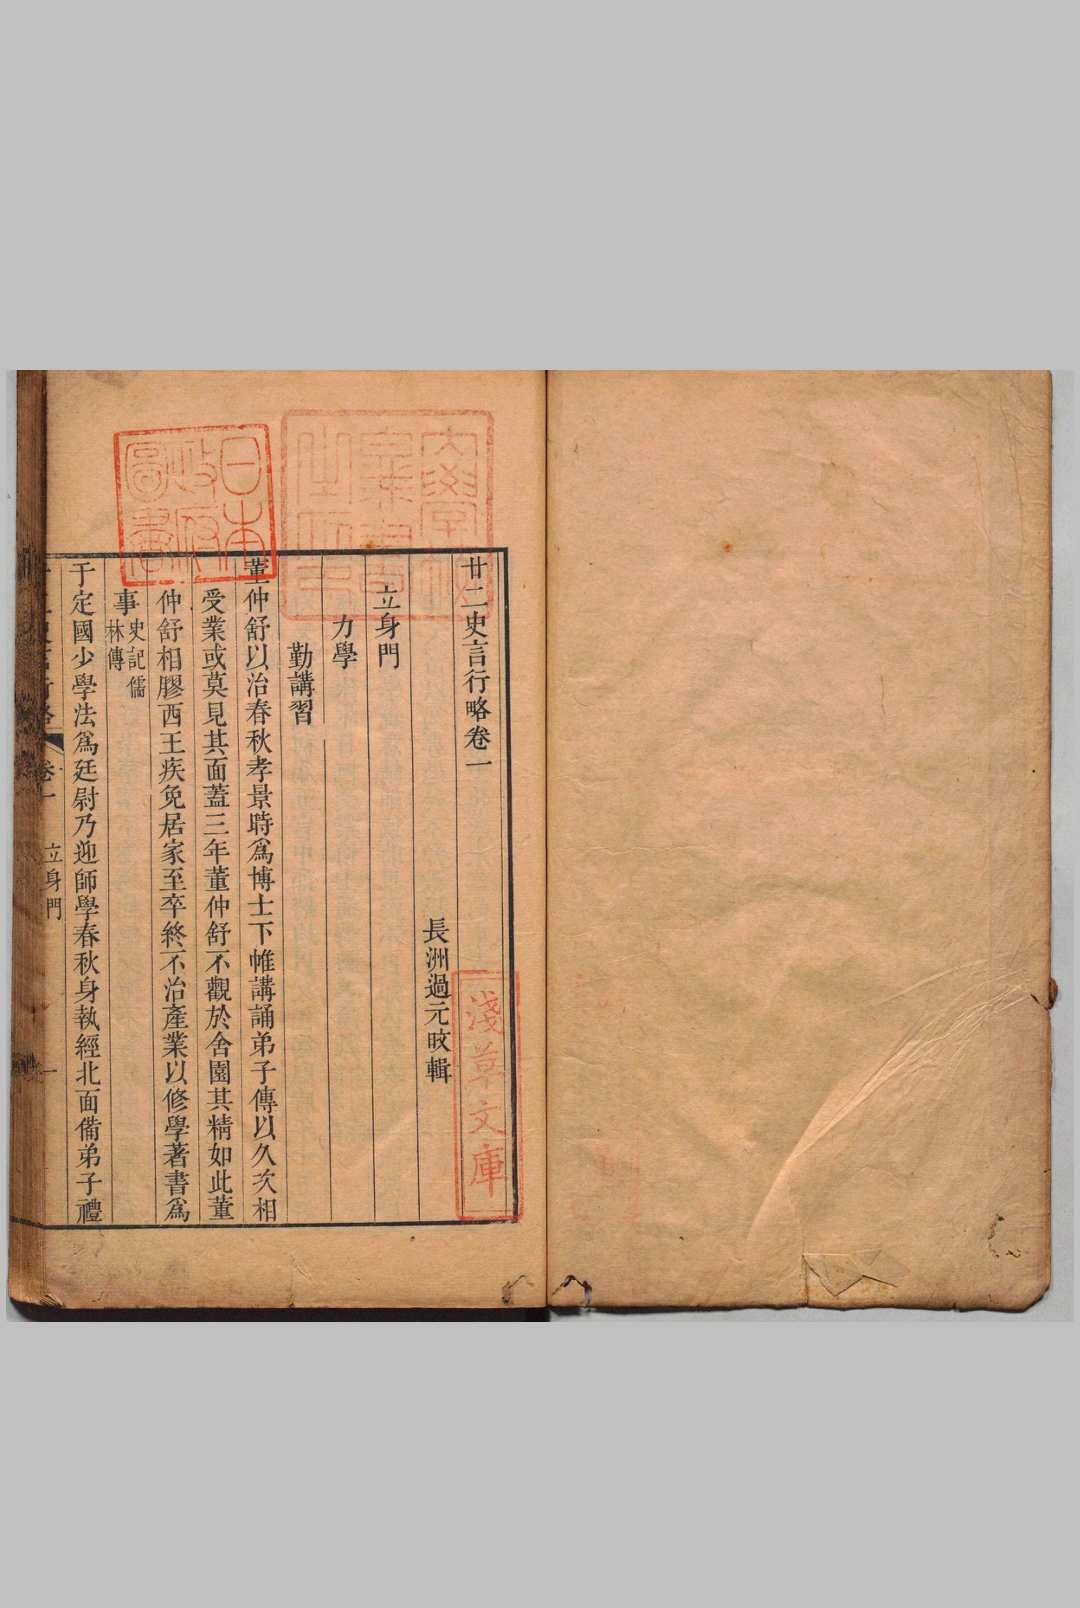 廿二史言行略卷一
長洲過元旼輯
立身門
力學
勤講習
董仲舒以治春秋孝景時爲博士下帷講誦弟子傳以久次相
受業或莫見其面蓋三年董仲舒不觀於舍園其精如此董
仲舒相膠西王疾免居家至卒終不治產業以修學著書爲
事史記儒林傳
于定國少學法爲廷尉乃迎師學春秋身執經北面備弟子禮
卷一 立身門 一
日本政府圖書
淺草文庫